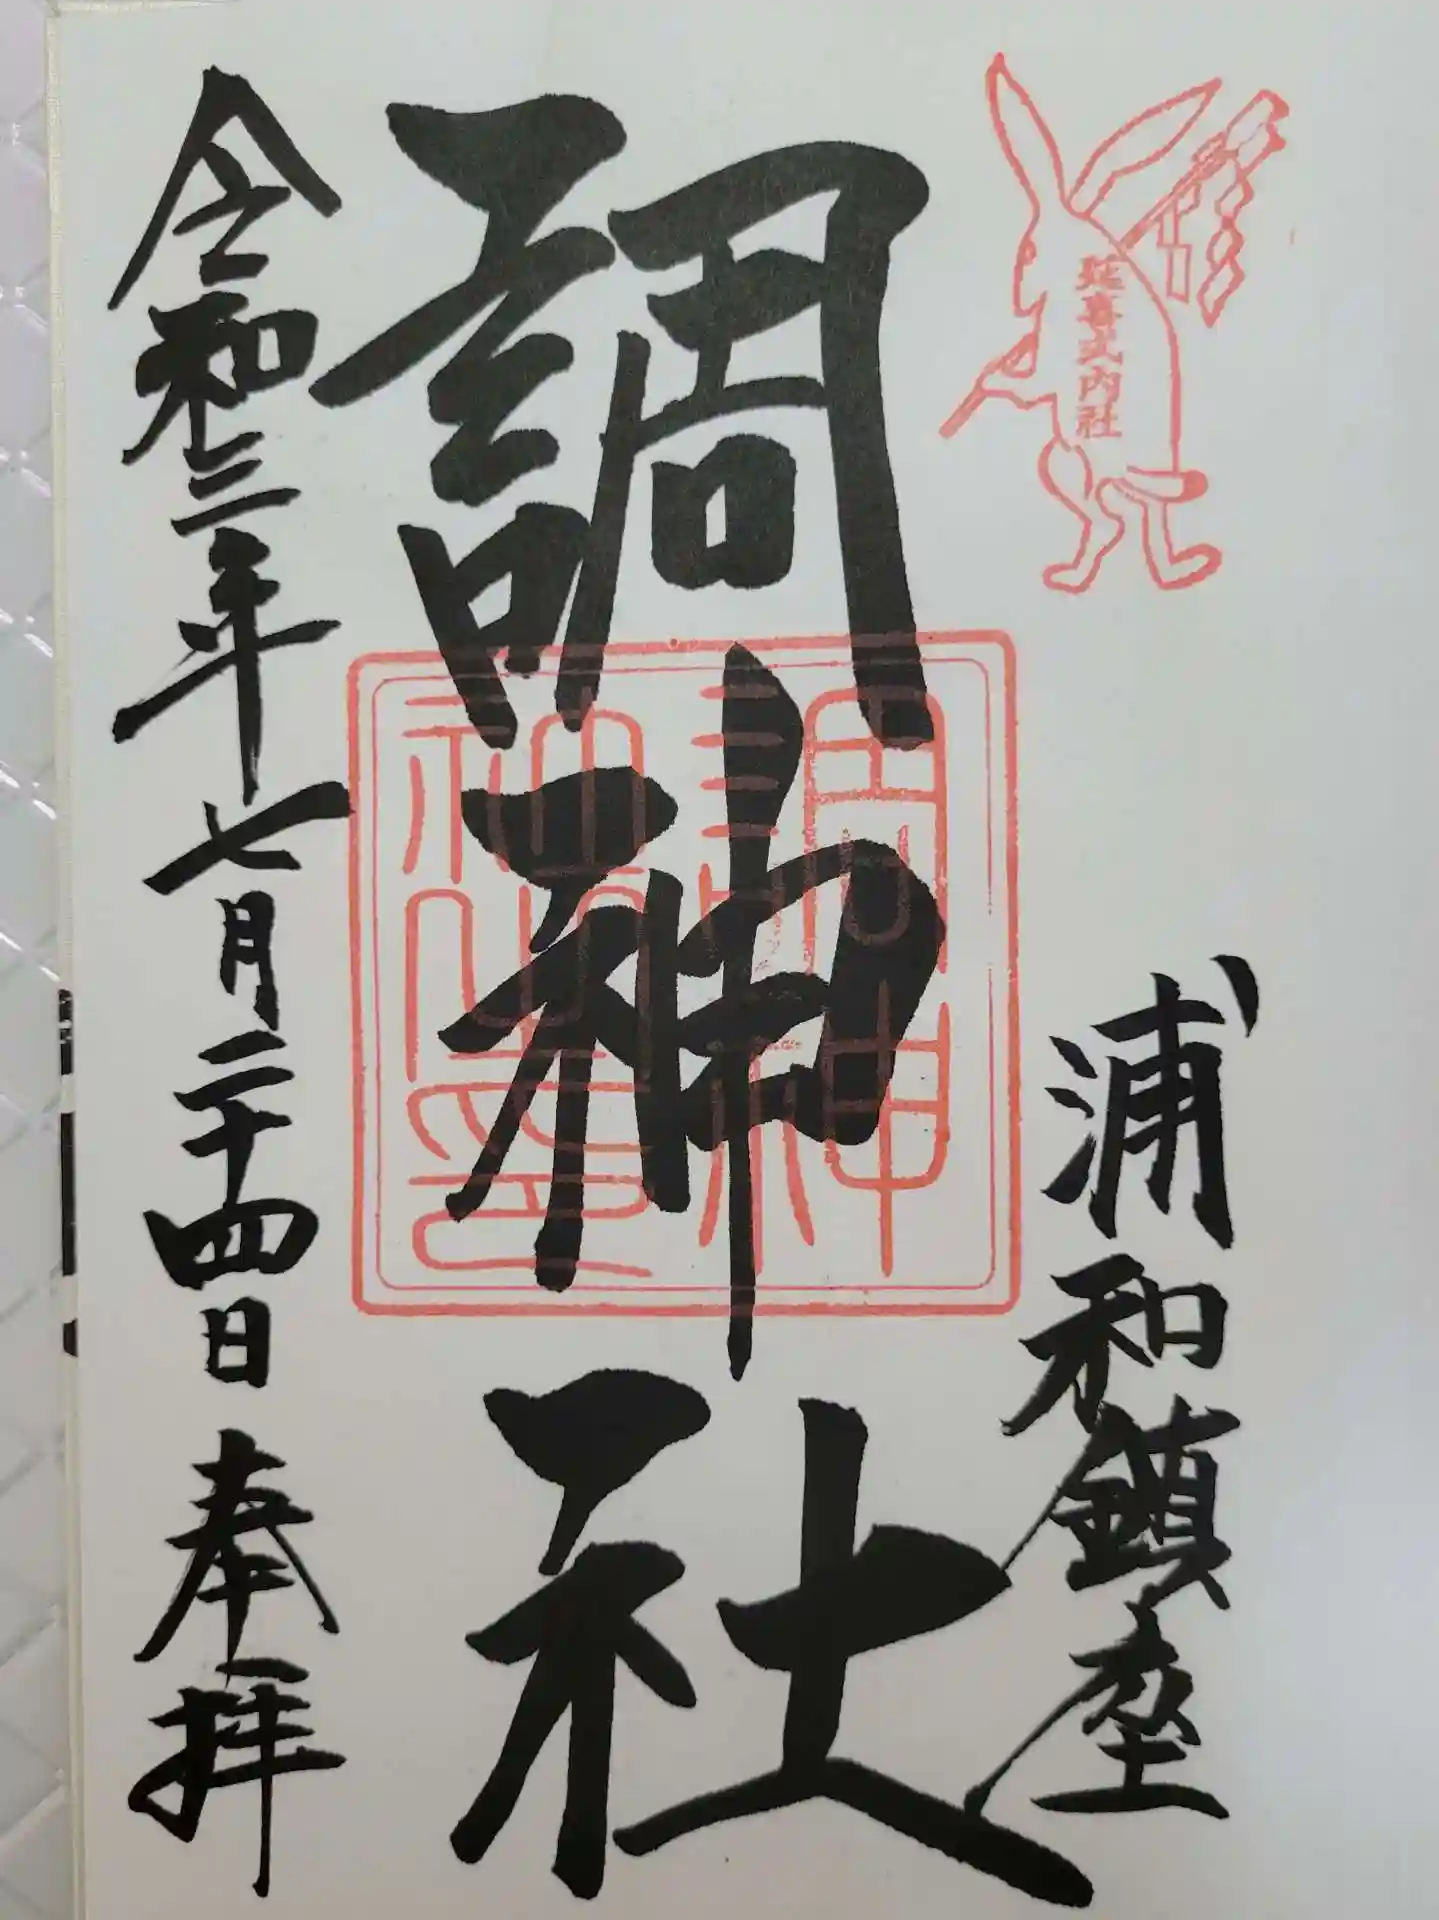 延喜式内社
浦和鎮座
調神社
調神
社之印
令和三年七月二十四日奉拝